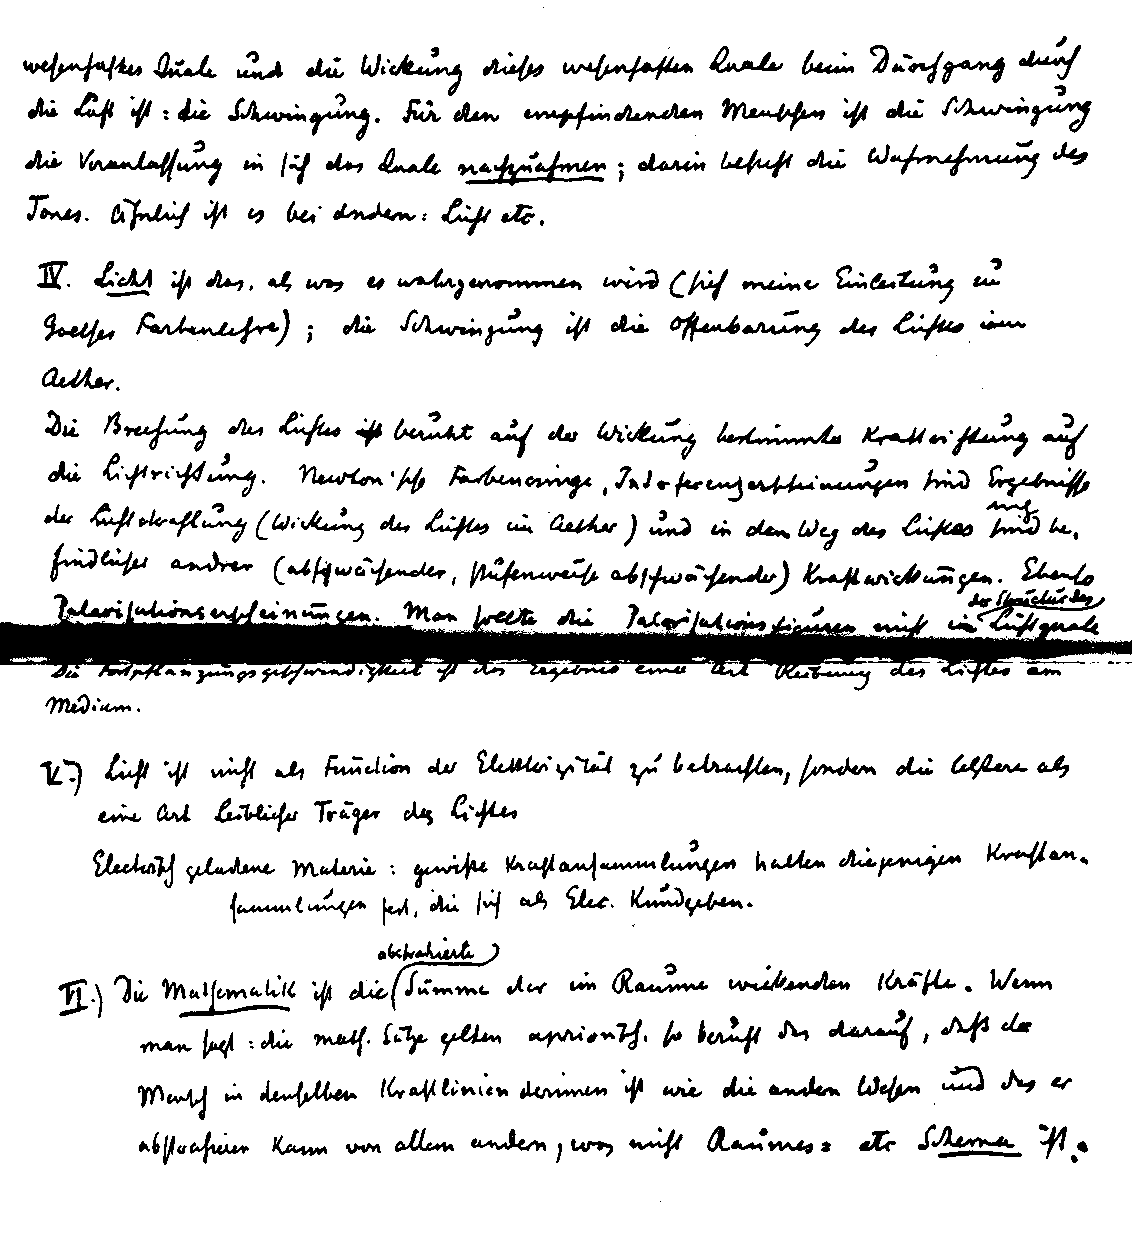 wesenhaftes Quale und die Wirkung dieses wesenhaften Quale beim Durchgang durch
die Luft ist: die Schwingung. Für den empfindenden Menschen ist die Schwingung
die Veranlassung in sich das Quale nachzuahmen; darin besteht die Wahrnehmung des
Tones. Ähnlich ist es bei andern: Licht etc.
IV. Licht ist das, als was es wahrgenommen wird (sieh meine Einleitung zu
Goethes Farbenlehre); die Schwingung ist die Offenbarung des Lichtes im
Aether.
Die Brechung des Lichtes ist beruht auf der Wirkung bestimmter Kraftrichtung auf
die Lichtrichtung. Newton'sche Farbenringe, Interferenzerscheinungen sind Ergebnisse
der Lichtkraftung (Wirkung des Lichtes im Aether) und in dem Weg des Lichtes sind be-
sich
findlicher andrer (abschwächender, stufenweise abschwächender) Kraftwirkungen. Ebenso
der Structur des
Polarisationserscheinungen. Man sollte die Polarisationsfiguren nicht in Lichtquale
Die Fortpflanzungsgeschwindigkeit ist das Ergebnis einer Art Reibung des Lichtes am
Medium.
V.) Licht ist nicht als Function der Elektrizität zu betrachten, sondern die letztere als
eine Art leiblicher Träger des Lichtes
Electrisch geladene Materie: gewisse Kraftansammlungen halten diejenigen Kraftan-
sammlungen fest, die sich als Elec. Kundgeben.
abstrahierte
VI.) Die Mathematik ist die Summe der im Raume wirkenden Kräfte. Wenn
man sagt: die math. Sätze gelten apriorisch. so beruht das darauf, daß der
Mensch in denselben Kraftlinien darinnen ist wie die andern Wesen und das er
abstrahieren kann von allem andern, was nicht Raumes= etc Schema ist.